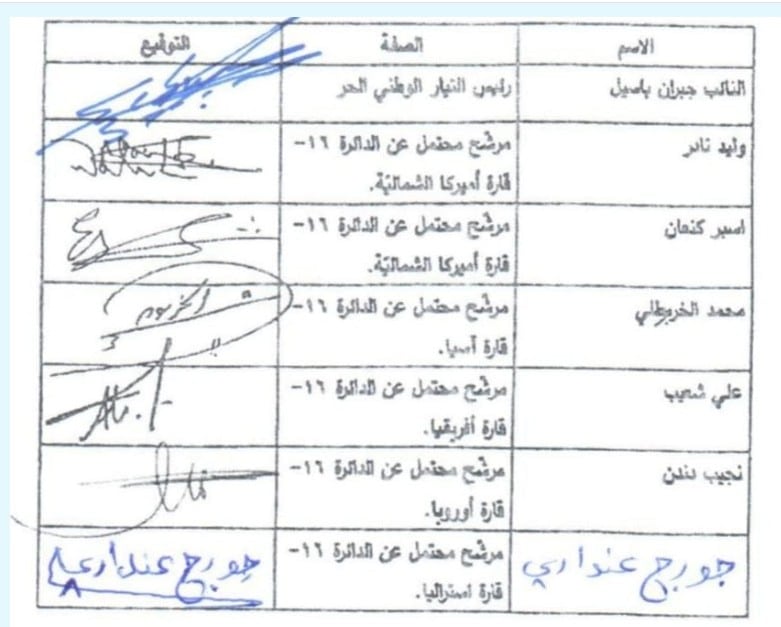 الاسم الصفة التوقيع
النائب جبران باسيل رئيس التيار الوطني الحر
وليد نادر مرشّح محتمل عن الدائرة ١٦-
قارة أميركا الشماليّة.
اسبر كنعان مرشّح محتمل عن الدائرة ١٦-
قارة أميركا الشماليّة.
محمد الخربطلي مرشّح محتمل عن الدائرة ١٦-
قارة آسيا.
علي شعيب مرشّح محتمل عن الدائرة ١٦-
قارة أفريقيا.
نجيب دندن مرشّح محتمل عن الدائرة ١٦-
قارة أوروبا.
جورج عنداري مرشّح محتمل عن الدائرة ١٦- جورج عنداري
قارة استراليا.